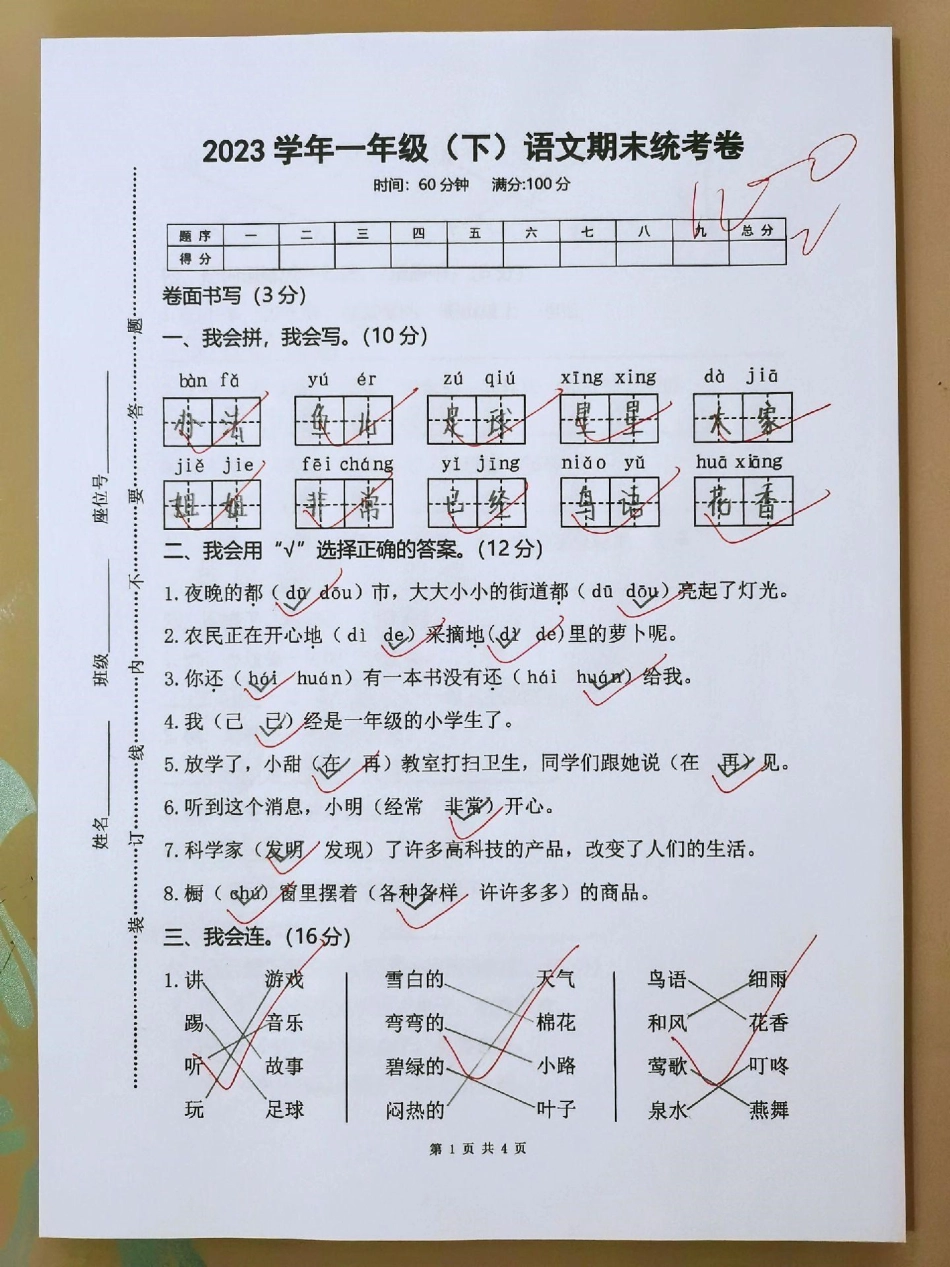 2023 学年一年级（下）语文期末统考卷
时间：60 分钟 满分:100 分
100
题 序 一 二 三 四 五 六 七 八 九 总 分
得 分
卷面书写（3 分）
一、我会拼，我会写。（10 分）
bàn fǎ yú ér zú qiú xīng xing dà jiā
办 法 鱼 儿 足 球 星 星 大 家
jiě jie fēi cháng yǐ jīng niǎo yǔ huā xiāng
姐 姐 非 常 已 经 鸟 语 花 香
二、我会用“√”选择正确的答案。（12 分）
1. 夜晚的都（ dū dōu）市，大大小小的街道都（dū dōu）亮起了灯光。
2. 农民正在开心地（ dì de）采摘地(dì de)里的萝卜呢。
3. 你还（ hái huán）有一本书没有还（ hái huán）给我。
4. 我（己 已）经是一年级的小学生了。
5. 放学了，小甜（在 再）教室打扫卫生，同学们跟她说（在 再）见。
6. 听到这个消息，小明（经常 非常）开心。
7. 科学家（发明 发现）了许多高科技的产品，改变了人们的生活。
8. 橱（ chú）窗里摆着（各种各样 许许多多）的商品。
三、我会连。（16 分）
1. 讲 游戏 雪白的 天气 鸟语 细雨
踢 音乐 弯弯的 棉花 和风 花香
听 故事 碧绿的 小路 莺歌 叮咚
玩 足球 闷热的 叶子 泉水 燕舞
第 1 页 共 4 页
座位号
班级
姓名
装 订 线 内 不 要 答 题